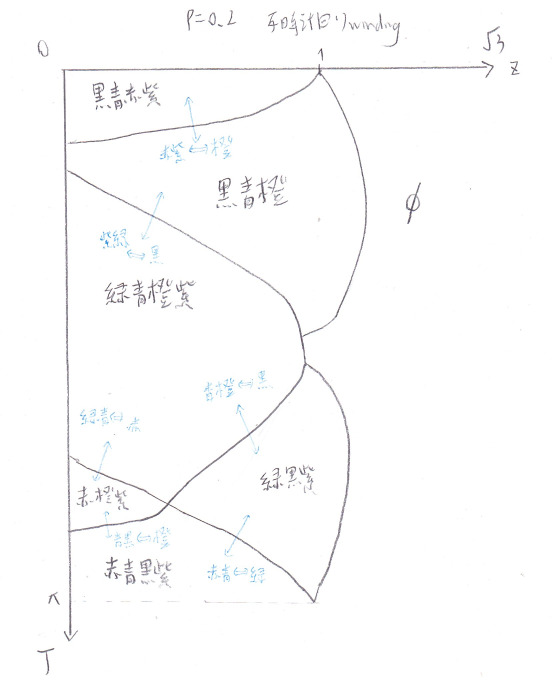 P=0.2 反時計回り winding
0
1
√3
z
黒青赤紫
赤紫⇔橙
黒青橙
φ
紫緑⇔黒
緑青橙紫
青橙⇔黒
緑青⇔赤
赤橙紫
緑黒紫
青黒⇔橙
赤青黒紫
赤青⇔緑
π
T